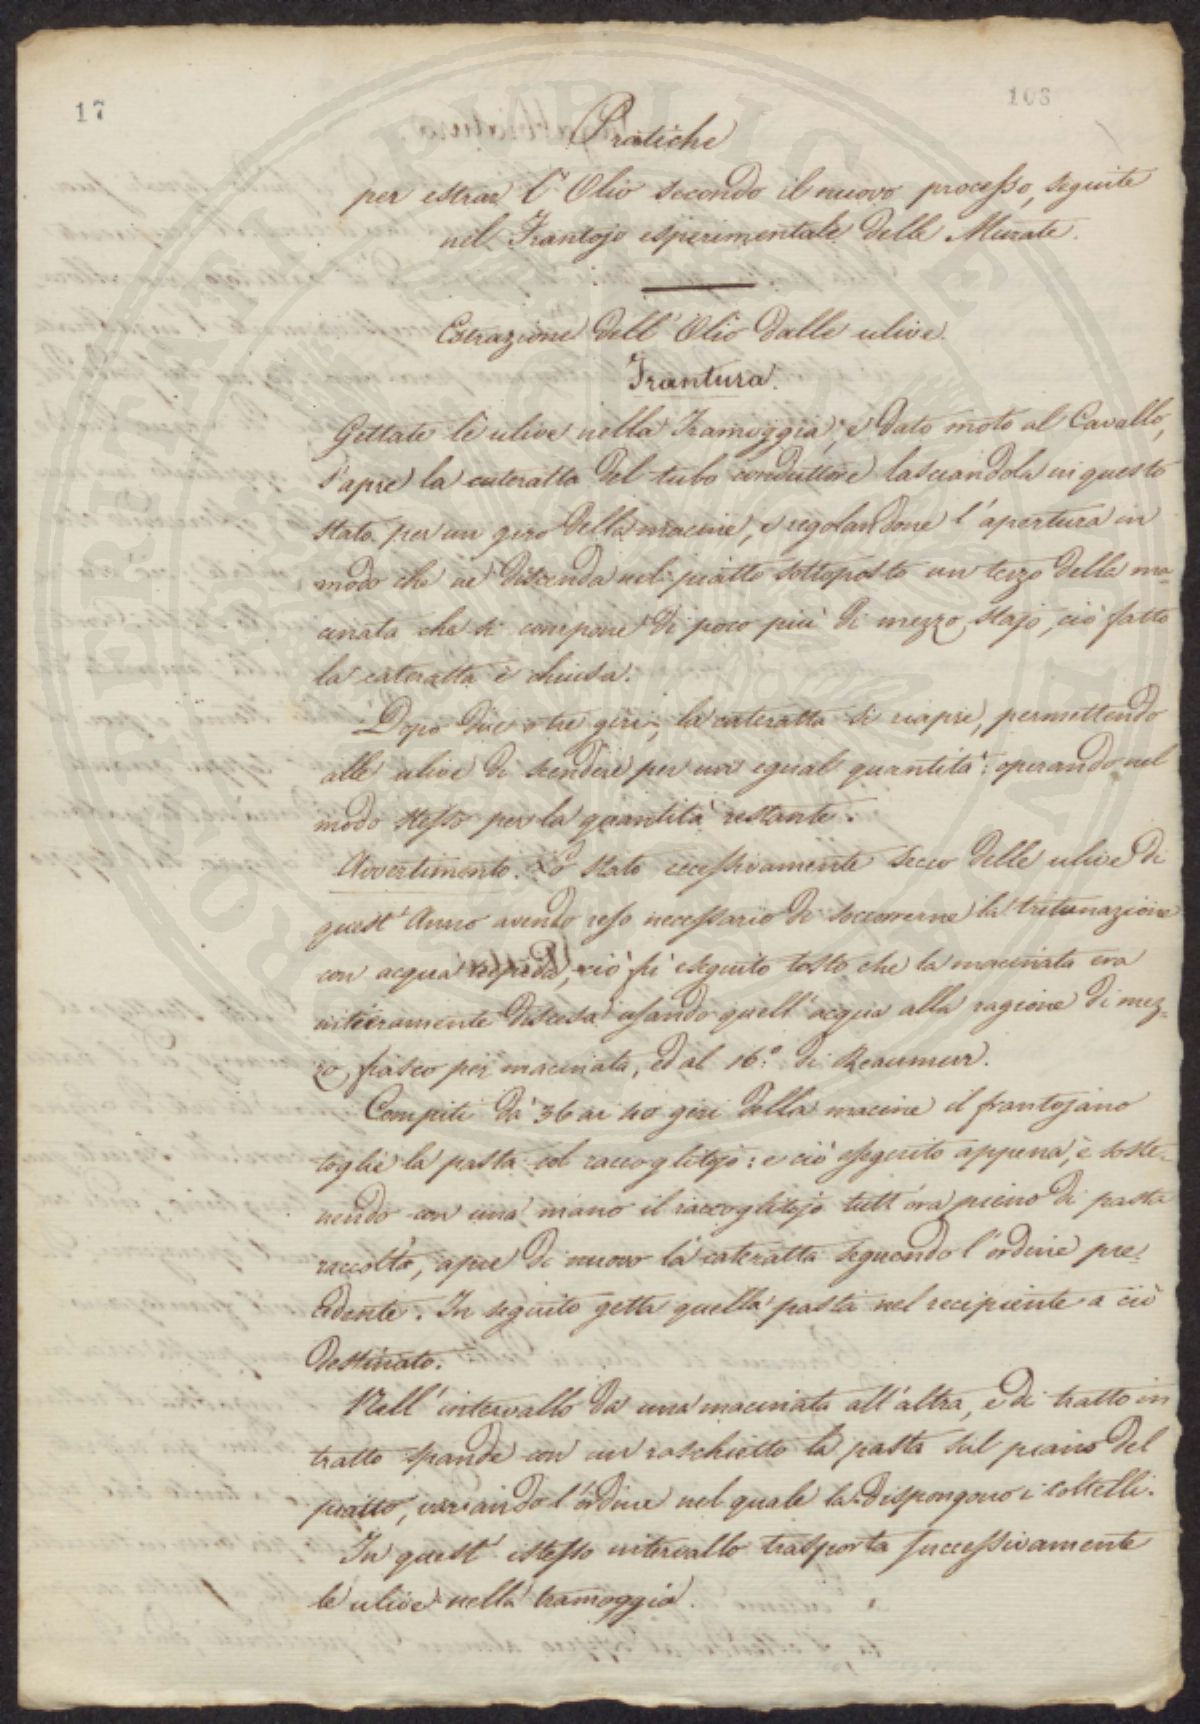 17
103
Pratiche
per estrar l'Olio secondo il nuovo processo, seguite
nel Frantojo esperimentale delle Murate.
Estrazione dell'Olio dalle ulive.
Frantura.
Gettate le ulive nella Tramoggia, e dato moto al Cavallo,
s'apre la cateratta del tubo conduttore lasciandola in questo
stato per un giro della macine, e regolandone l'apertura in
modo che ne discenda nel piatto sottoposto un terzo della ma-
cinata che si compone di poco più di mezzo stajo, ciò fatto
la cateratta è chiusa.
Dopo due o tre giri, la cateratta si riapre, permettendo
alle ulive di scendere per un egual quantità: operando nel
modo stesso per la quantità restante.
Avvertimento. Lo stato eccessivamente secco delle ulive di
quest'Anno avendo reso necessario di soccorrerne la triturazione
con acqua tepida, ciò fù eseguito tosto che la macinata era
interamente discesa usando quell'acqua alla ragione di mez-
zo fiasco per macinata, ed al 16.° di Reaumur.
Compiti da 36 ai 40 giri della macine il frantojano
toglie la pasta col raccoglitojo: e ciò eseguito appena, e soste-
nendo con una mano il raccoglitojo tutt'ora pieno di pasta
raccolta, apre di nuovo la cateratta seguendo l'ordine pre-
cedente. In seguito getta quella pasta nel recipiente a ciò
destinato.
Nell'intervallo da una macinata all'altra, e di tratto in
tratto spande con un raschietto la pasta sul piano del
piatto, variando l'ordine nel quale la dispongono i coltelli.
In quest'istesso intervallo trasporta successivamente
le ulive nella tramoggia.